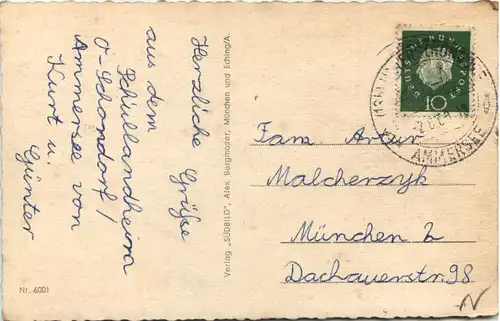 Herzliche Grüße
aus dem
Schullandheim
O-Schondorf /
Ammersee von
Kurt u.
Günter
Nr. 6001
Verlag "SÜDBILD", Alex. Bergmoser, München und Eching/A.
DEUTSCHE BUNDESPOST
10
AMMERSEE
Fam. Artur
Malcherzyk
München 2
Dachauerstr. 98